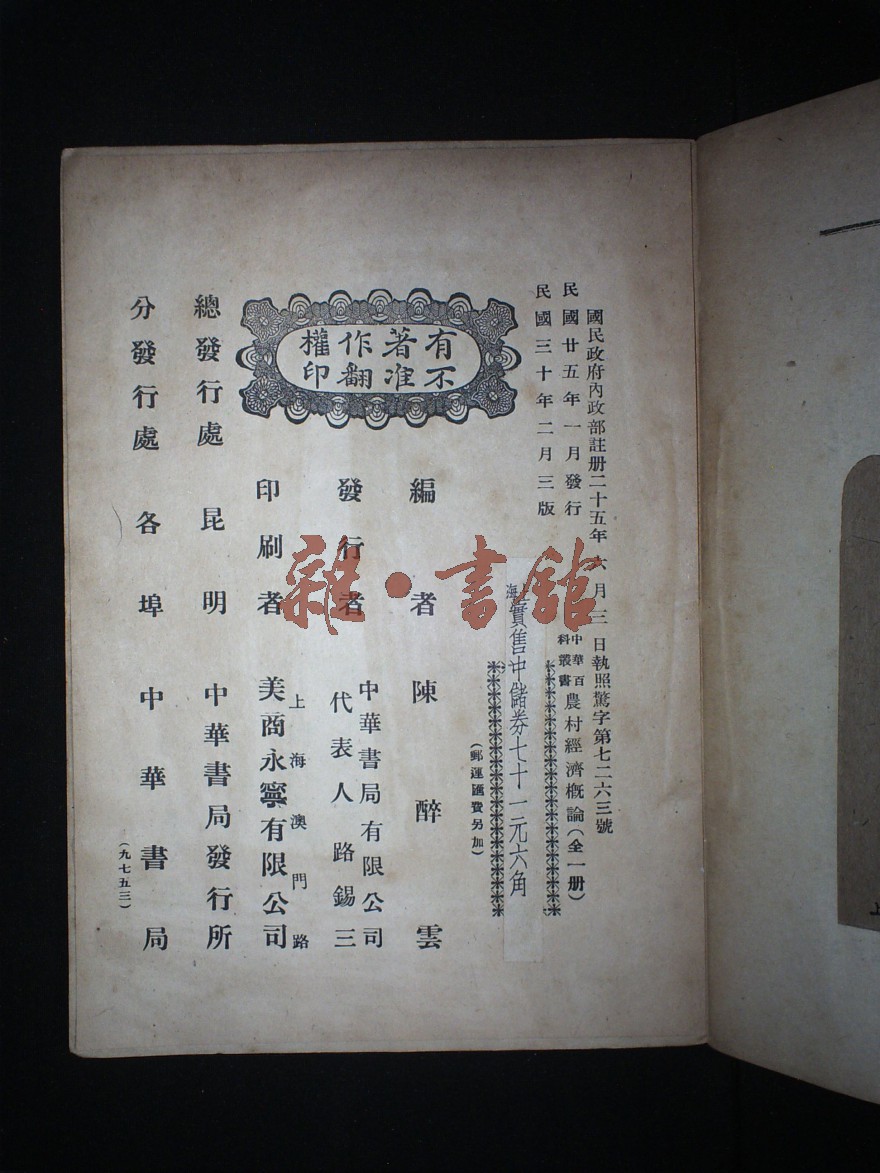 國民政府內政部註册二十五年六月三日執照警字第七二六三號
民國廿五年一月發行
民國三十年二月三版
中華百科叢書
農村經濟概論（全一册）
實售中儲券七十一元六角
（郵運匯費另加）
有著作權
不准翻印
編者 陳醉雲
發行者 中華書局有限公司
代表人 路錫三
印刷者 上海澳門路
美商永寧有限公司
總發行處 昆明 中華書局發行所
分發行處 各埠 中華書局
（九七五三）
雜·書館